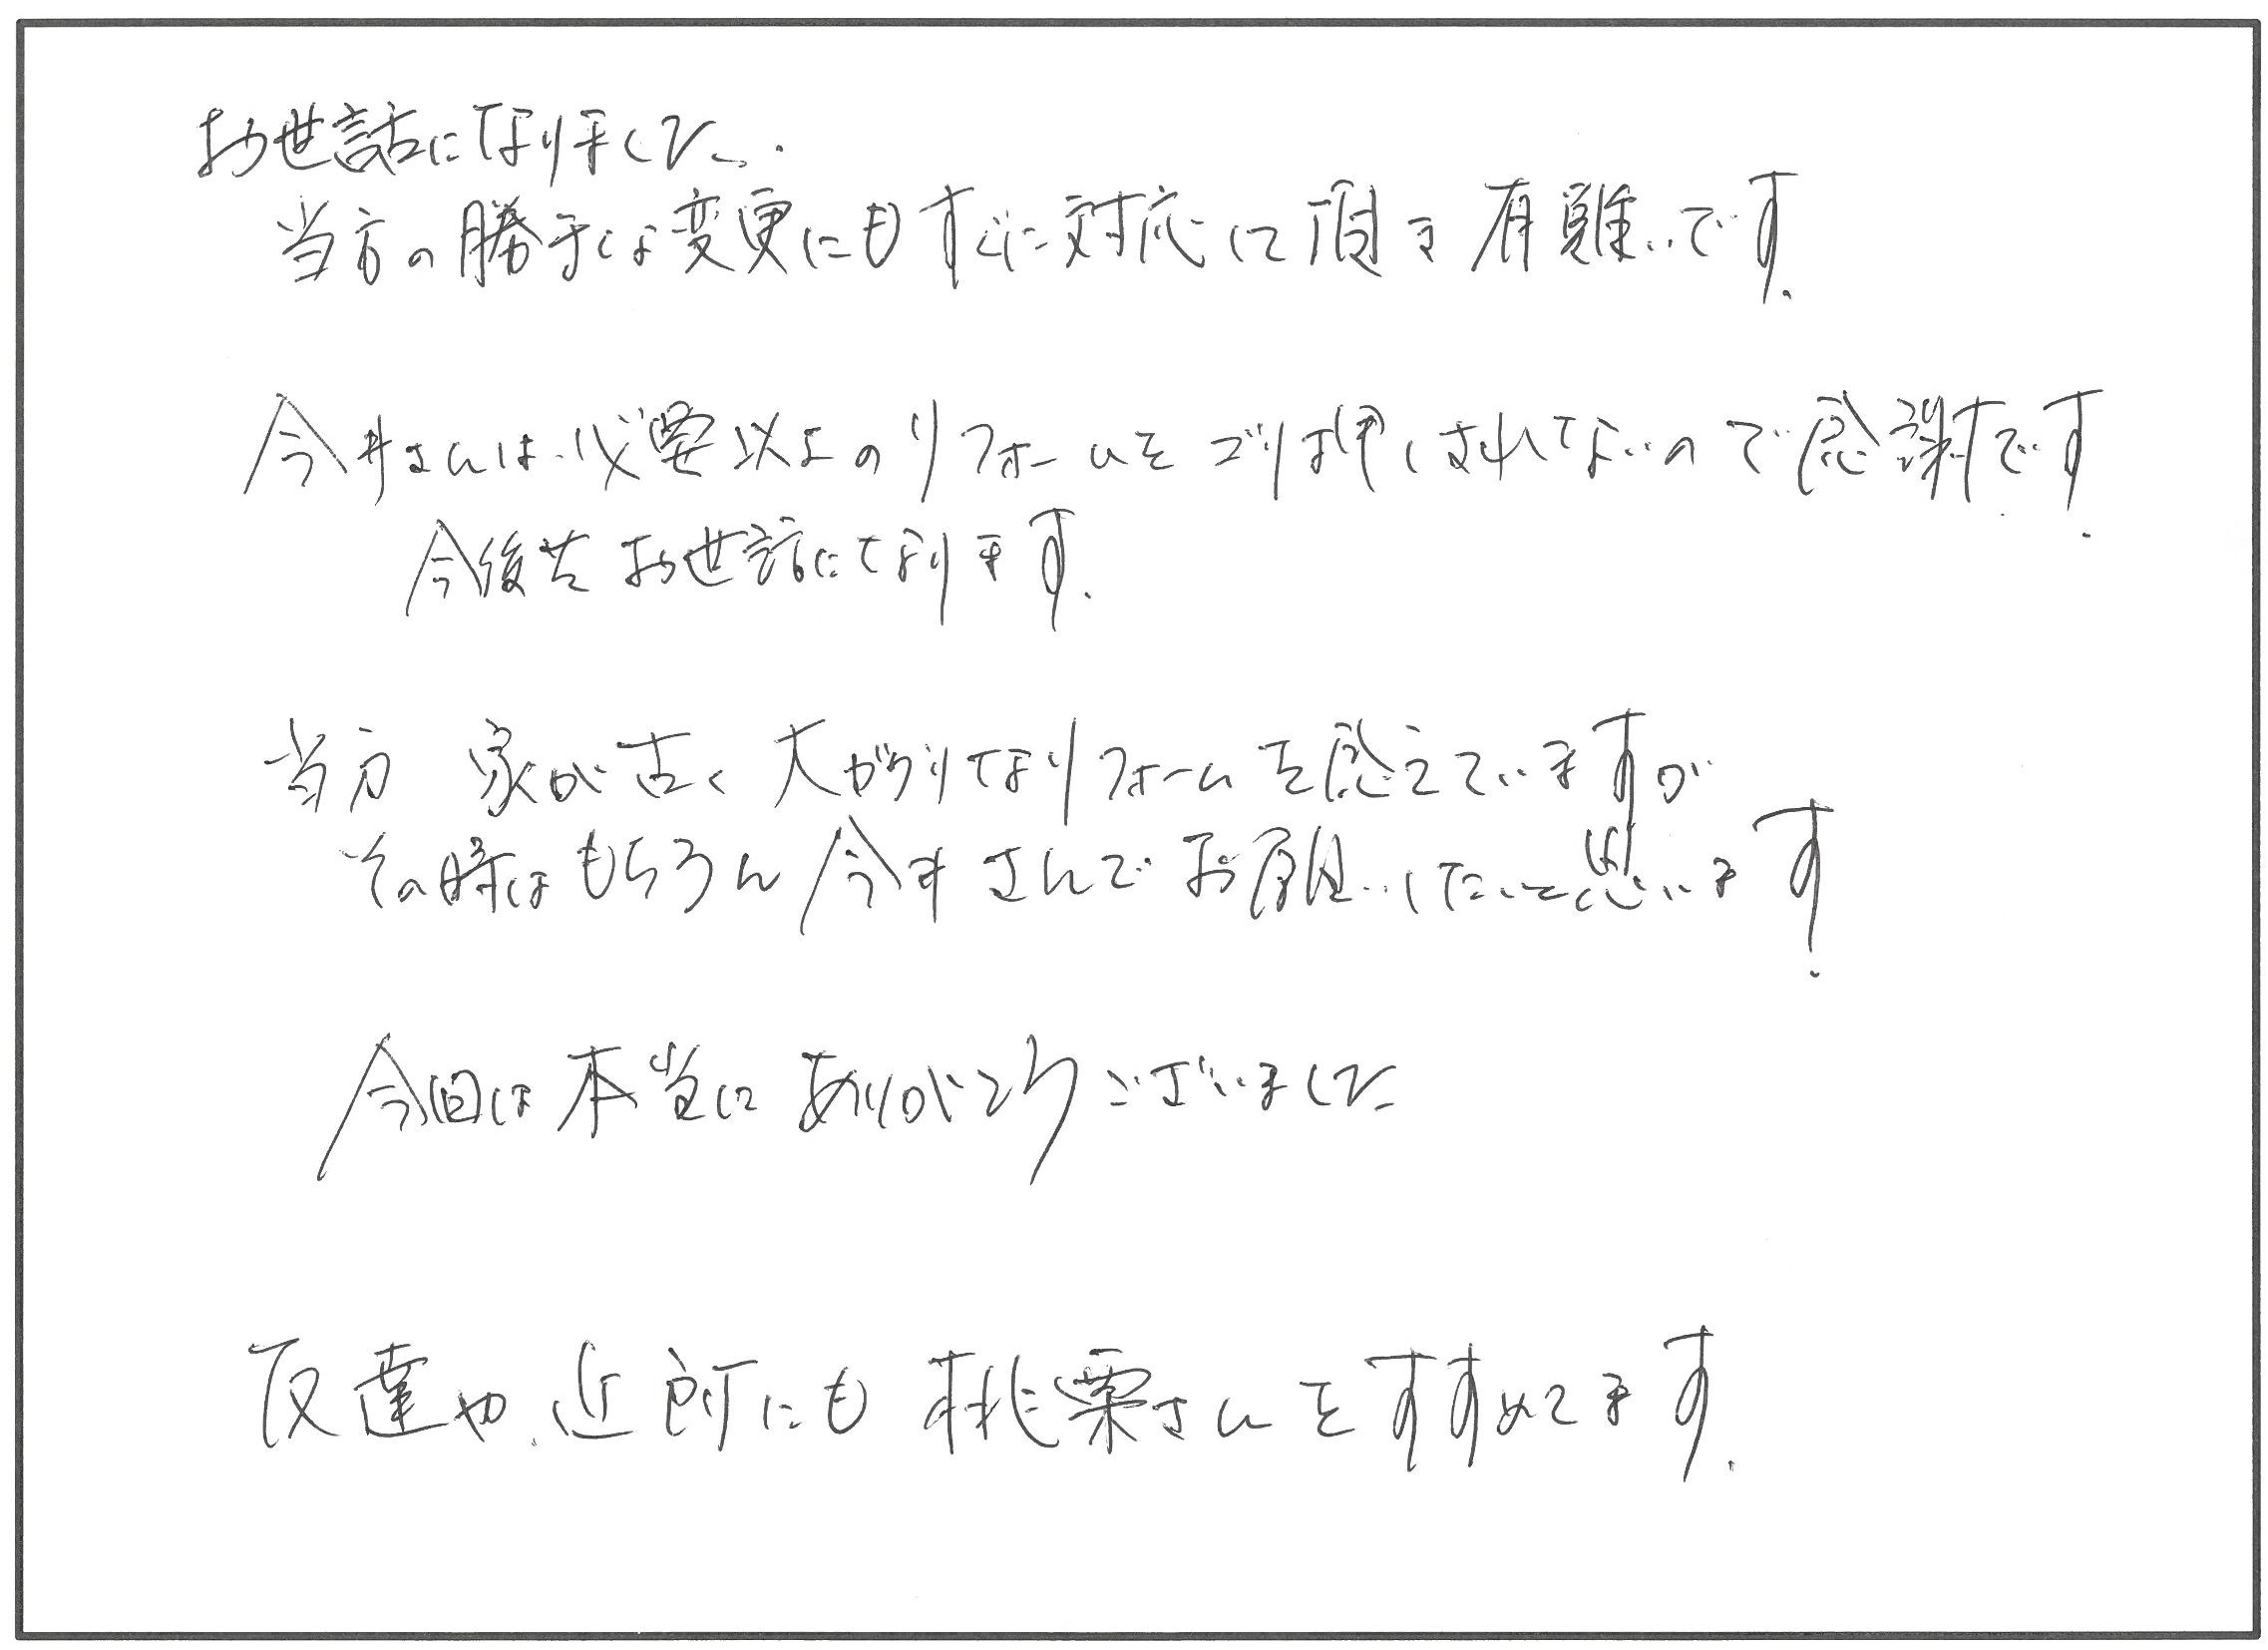 お世話になりました.
当方の勝手な変更にもすぐに対応して頂き有難いです.
今井さんは必要以上のリフォームをゴリ押しされてないので感謝です.
今後共お世話になります.
当方 家が古く大がかりなリフォームを考えていますが
その時はもちろん今井さんでお願いしたいと思います.
今回は本当にありがとうございました
友達や近所にも桃栗さんをすすめてます.